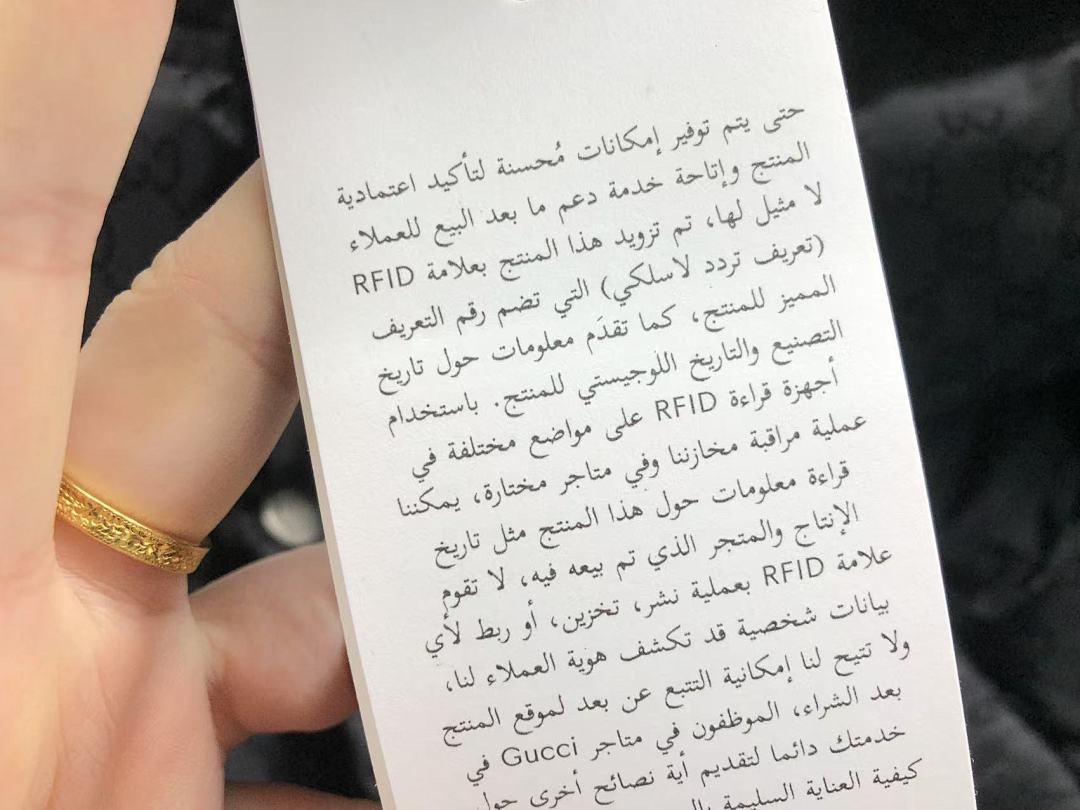 حتى يتم توفير إمكانات مُحسنة لتأكيد اعتمادية
المنتج وإتاحة خدمة دعم ما بعد البيع للعملاء
لا مثيل لها، تم تزويد هذا المنتج بعلامة RFID
(تعريف تردد لاسلكي) التي تضم رقم التعريف
المميز للمنتج، كما تقدَم معلومات حول تاريخ
التصنيع والتاريخ اللوجيستي للمنتج. باستخدام
أجهزة قراءة RFID على مواضع مختلفة في
عملية مراقبة مخازننا وفي متاجر مختارة، يمكننا
قراءة معلومات حول هذا المنتج مثل تاريخ
الإنتاج والمتجر الذي تم بيعه فيه، لا تقوم
علامة RFID بعملية نشر، تخزين، أو ربط لأي
بيانات شخصية قد تكشف هوية العملاء لنا،
ولا تتيح لنا إمكانية التتبع عن بعد لموقع المنتج
بعد الشراء، الموظفون في متاجر Gucci في
خدمتك دائما لتقديم أية نصائح أخرى حول
كيفية العناية السليمة